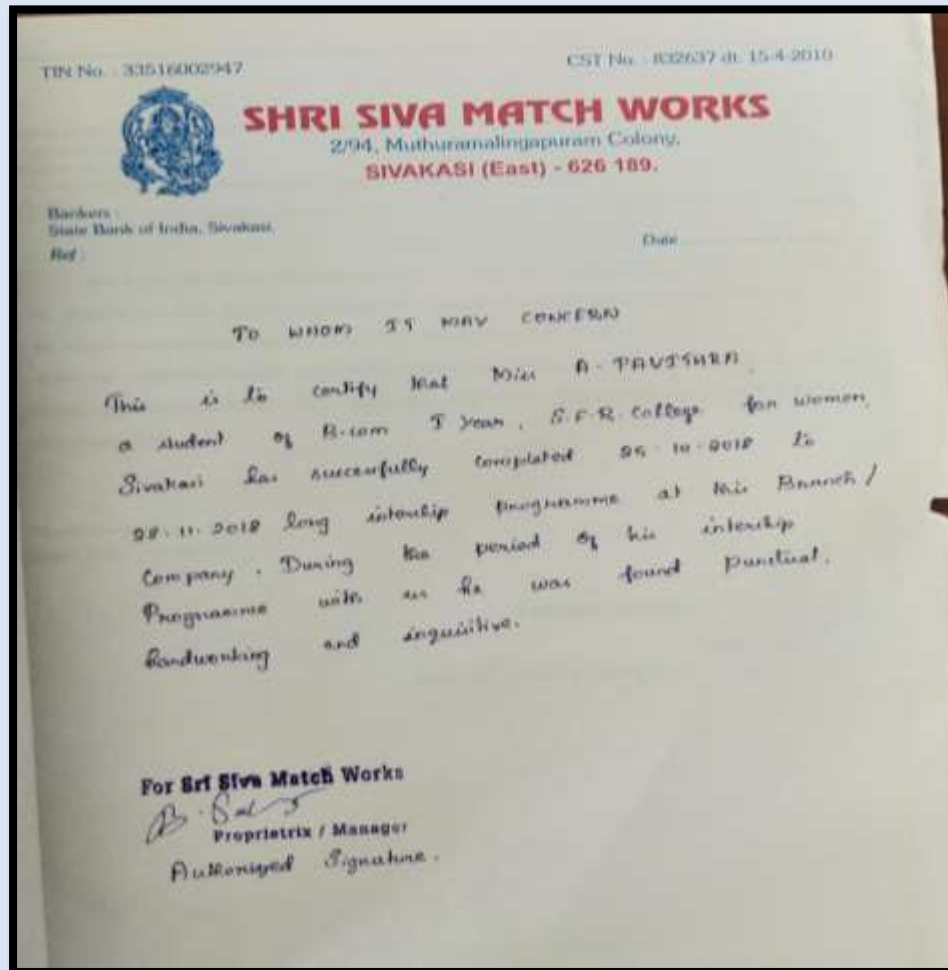 TIN No. : 33516002947
CST No. : 832637 dt. 15-4-2010
SHRI SIVA MATCH WORKS
2/94, Muthuramalingapuram Colony,
SIVAKASI (East) - 626 189.
Bankers :
State Bank of India, Sivakasi.
Ref :
Date
TO WHOM IT MAY CONCERN
This is to certify that Miss A. PAVITHRA
a student of B.com I Year, S.F.R. College for women,
Sivakasi has successfully completed 25-10-2018 to
28-11-2018 long intership programme at this Branch /
Company. During the period of his intership
Programme with us he was found Punctual.
hardworking and inquisitive.
For Sri Siva Match Works
Proprietrix / Manager
Authorized Signature.